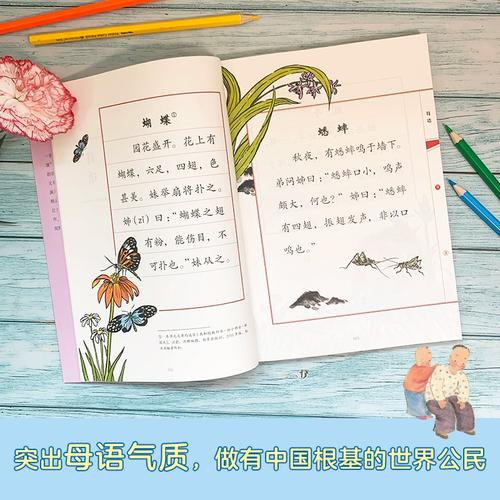 蝴蝶①
园花盛开。花上有
蝴蝶，六足，四翅，色
甚美。妹举扇将扑之。
姊(zǐ)曰：“蝴蝶之翅
有粉，能伤目，不
可扑也。”妹从之。
蟋蟀
秋夜，有蟋蟀鸣于墙下。
弟问姊曰：“蟋蟀口小，鸣声
颇大，何也？”姊曰：“蟋蟀
有四翅，振翅发声，非以口
鸣也。”
母语
突出母语气质，做有中国根基的世界公民